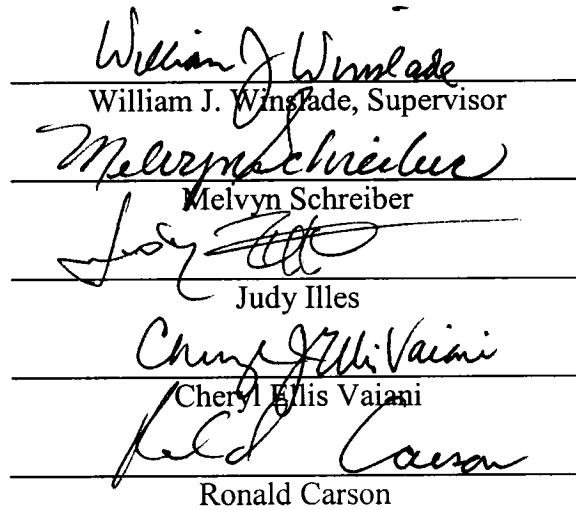 William J Winslade
William J. Winslade, Supervisor
Melvyn Schreiber
Melvyn Schreiber
Judy
Judy Illes
Cheryl Ellis Vaiani
Cheryl Ellis Vaiani
Ronald Carson
Ronald Carson